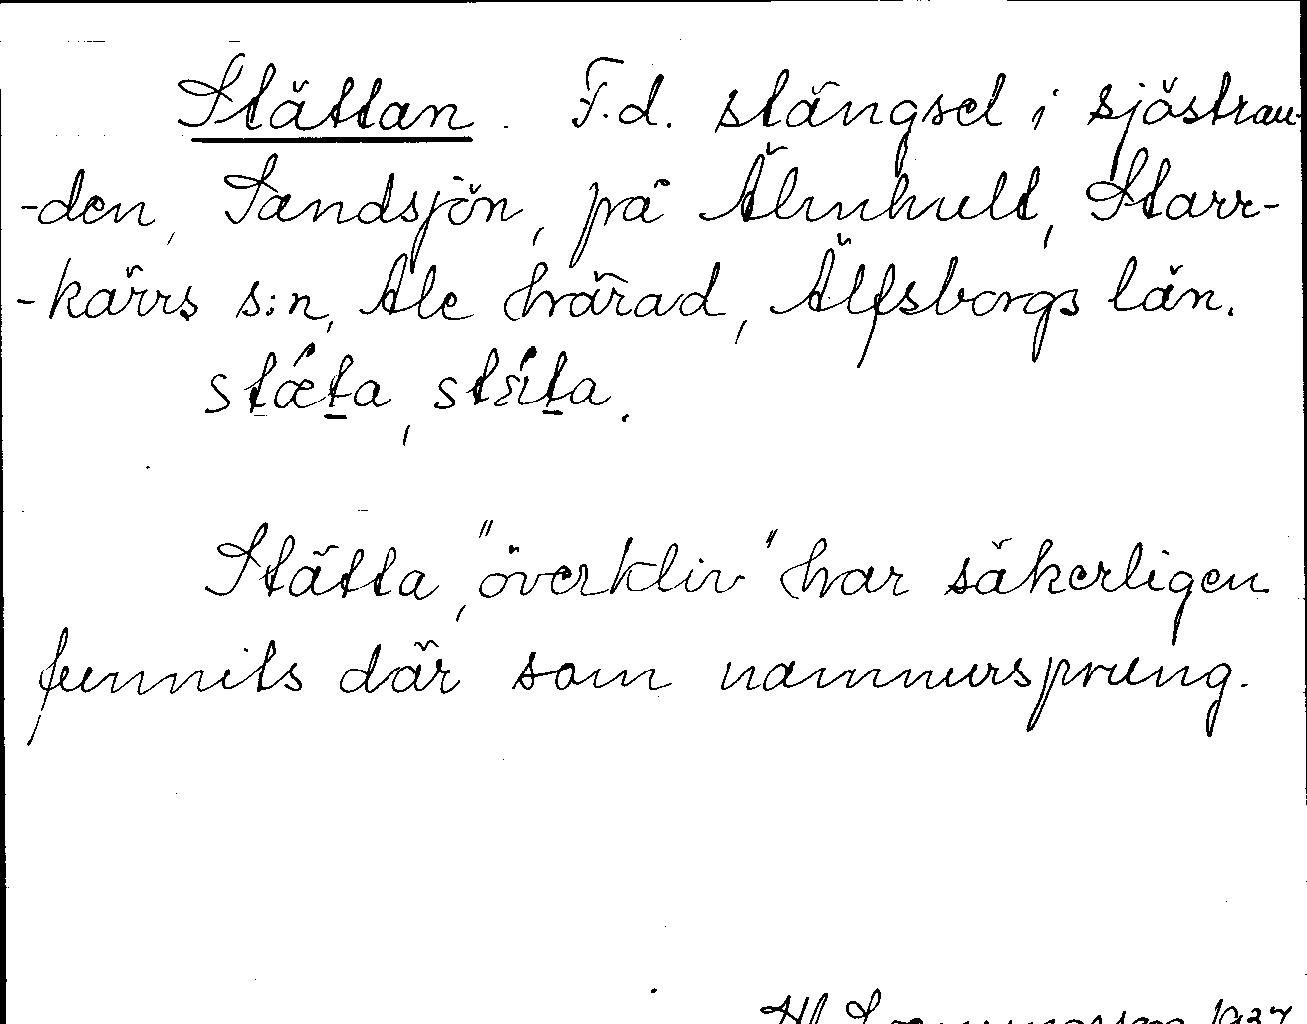 Stättan. F.d. stängsel i sjöstran-
-den, Sandsjön, på Älmhult, Starr-
-kärrs s:n, Ale härad, Älfsborgs län.
stæta,
Stätta, "överkliv" har säkerligen
funnits där som namnursprung.
1937